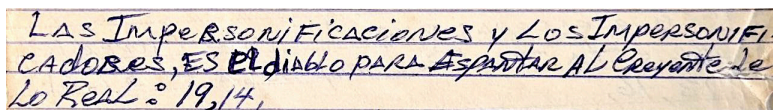 LAS IMPERSONIFICACIONES Y LOS IMPERSONIFI-
CADORES, ES El diABLO PARA ESPANTAR AL CREYENTE de
LO REAL: 19,14,